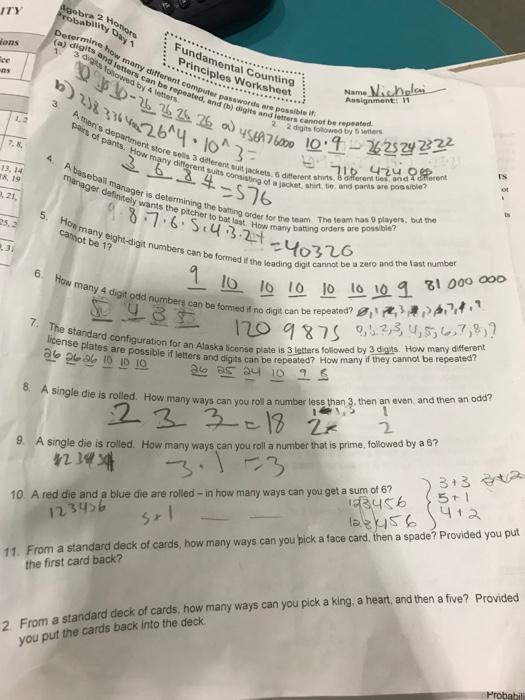 ITY
Algebra 2 Honors
Probability Day 1
Fundamental Counting
Principles Worksheet
Name Nicholai
Assignment: 11
Determine how many different computer passwords are possible if:
(a) digits and letters can be repeated, and (b) digits and letters cannot be repeated.
1. 3 digits followed by 4 letters
2. 2 digits followed by 5 letters
26 26 26 26 a) 456976000
10·9 26 25 24 23 22
b) 258336
26^4·10^3=
710 424 000
3. A men's department store sells 3 different suit jackets, 6 different shirts, 8 different ties, and 4 different
pairs of pants. How many different suits consisting of a jacket, shirt, tie, and pants are possible?
3 6 8 4 = 576
4. A baseball manager is determining the batting order for the team. The team has 9 players, but the
manager definitely wants the pitcher to bat last. How many batting orders are possible?
8.7.6.5.4.3.2.1 = 40320
5. How many eight-digit numbers can be formed if the leading digit cannot be a zero and the last number
cannot be 1?
9 10 10 10 10 10 10 9 81 000 000
6. How many 4 digit odd numbers can be formed if no digit can be repeated?
120 9875
7. The standard configuration for an Alaska license plate is 3 letters followed by 3 digits. How many different
license plates are possible if letters and digits can be repeated? How many if they cannot be repeated?
26 26 26 10 10 10 26 25 24 10 9 8
8. A single die is rolled. How many ways can you roll a number less than 3, then an even, and then an odd?
2 3 3 = 18
9. A single die is rolled. How many ways can you roll a number that is prime, followed by a 6?
3.1 = 3
10. A red die and a blue die are rolled – in how many ways can you get a sum of 6?
123456
5+1
123456
123456
3+3
5+1
4+2
11. From a standard deck of cards, how many ways can you pick a face card, then a spade? Provided you put
the first card back?
2. From a standard deck of cards, how many ways can you pick a king, a heart, and then a five? Provided
you put the cards back into the deck.
Probabili